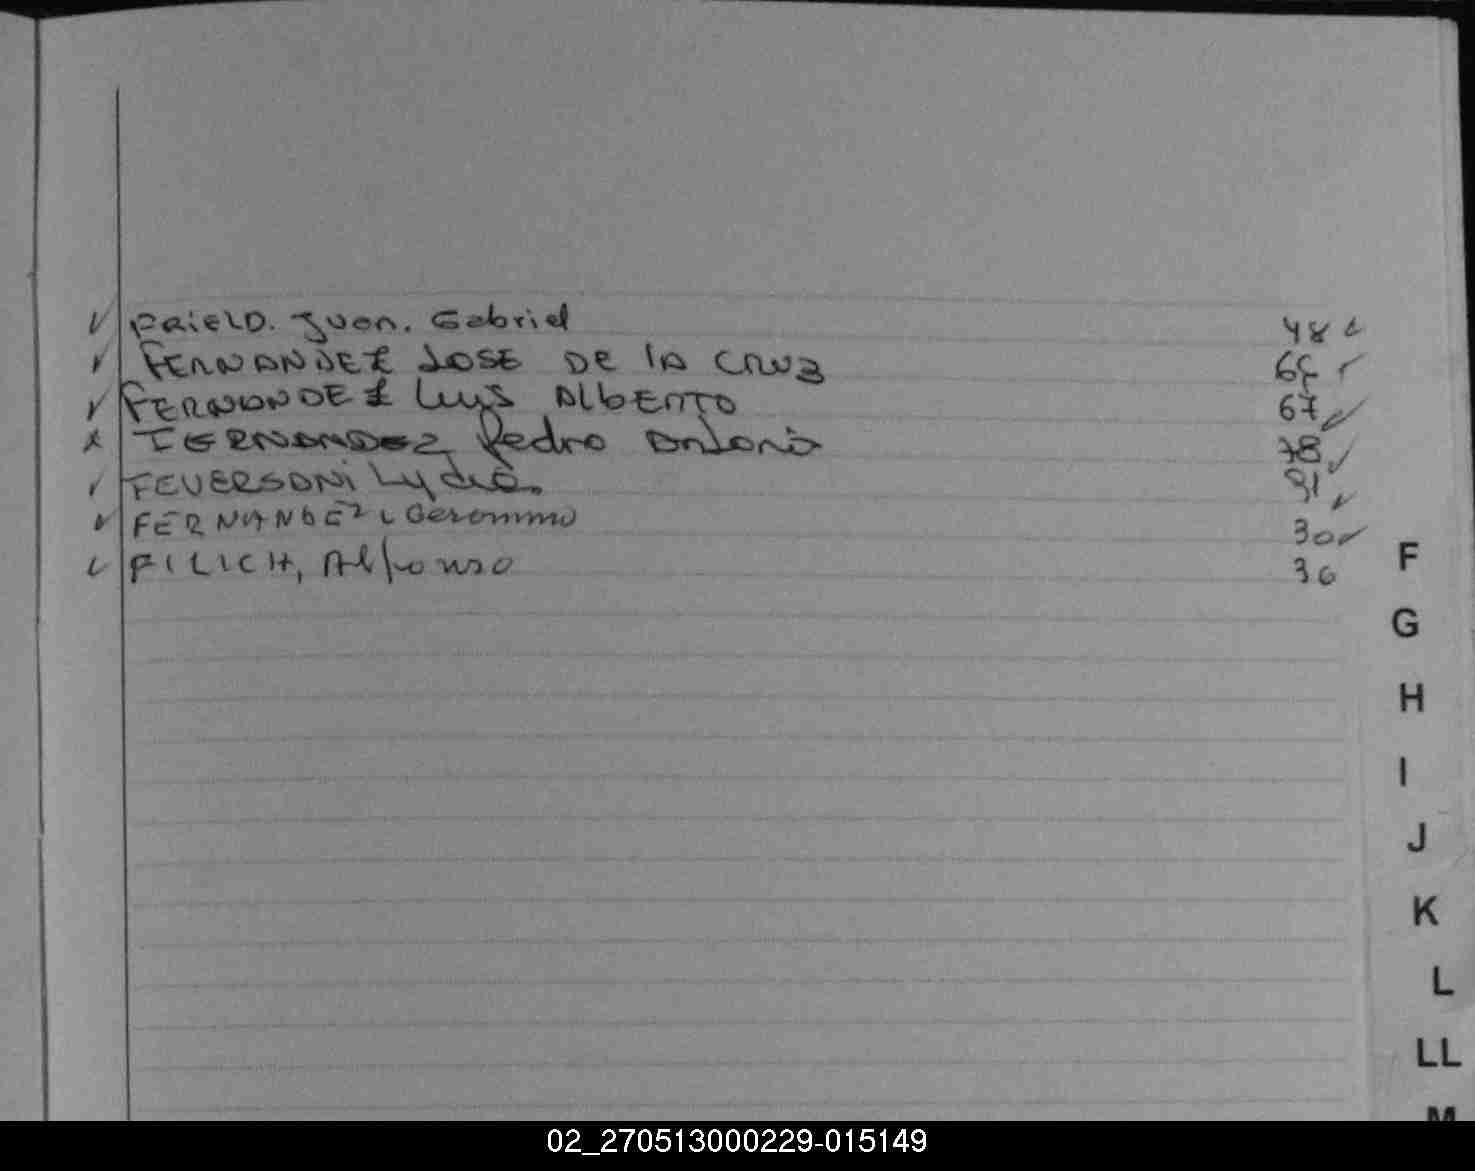 FRIELD. Juan. Gabriel 48
FERNANDEZ JOSE DE lA CRUZ 65
FERNANDEZ Luis AlbERTO 67
FERNANDEZ Pedro Antonio 78
FEVERSANi Lydia. 91
FERNANDEZ, Geronimo 30
FILICH, Alfonso 36
F
G
H
I
J
K
L
LL
M
02_270513000229-015149